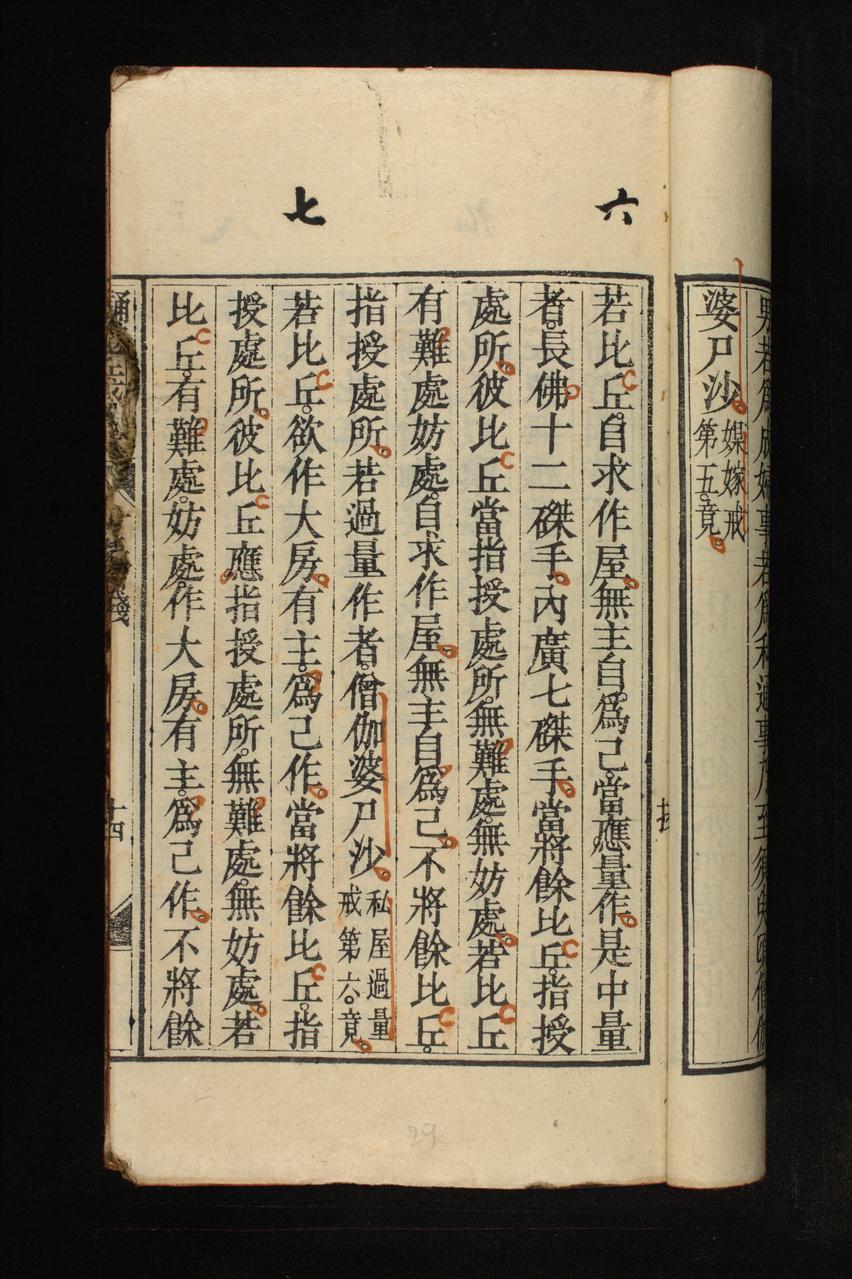 男若爲成婦事若爲私通事乃至須臾頃僧伽
婆尸沙。媒嫁戒
第五。竟。
六
若比丘。自求作屋。無主自。爲己。當應。量作。是中量
者。長佛十二磔手。內廣七磔手。當將餘比丘。指授
處所。彼比丘當指授處所。無難處。無妨處。若比丘
有難處妨處。自求作屋。無主自爲己。不將餘比丘。
指授處所。若過量作者。僧伽婆尸沙。私屋過量
戒第六。竟。
七
若比丘。欲作大房。有主。爲己作。當將餘比丘。指
授處所。彼比丘應指授處所。無難處。無妨處。若
比丘。有難處。妨處。作大房。有主。爲己作。不將餘
十四